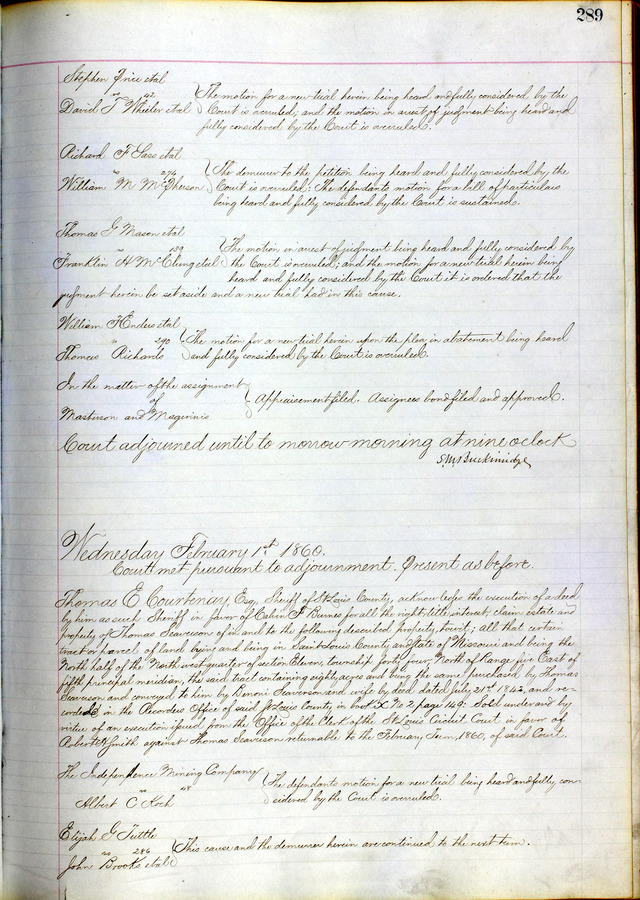 289
Stephen Price etal
vs 42
David T Wheeler etal
The motion for a new trial herein being heard and fully considered by the
Court is overruled; and the motion in arrest of judgment being heard and
fully considered by the Court is overruled.
Richard F Sass etal
vs 274
William M McPherson
The demurrer to the petition being heard and fully considered by the
Court is overruled: The defendants motion for a bill of particulars
being heard and fully considered by the Court is sustained.
Thomas G Mason etal
vs 139
Franklin A McClung etal
The motion in arrest of judgment being heard and fully considered by
the Court is overruled; and the motion for a new trial herein being
heard and fully considered by the Court it is ordered that the
judgment herein be set aside and a new trial had in this cause.
William Enders etal
vs 290
Thomas Richards
The motion for a new trial herein upon the plea in abatement being heard
and fully considered by the Court is overruled.
In the matter of the assignment
of
Masterson and Magennis
Appraisement filed. Assignees bond filed and approved.
Court adjourned until to morrow morning at nine oclock
S.M. Breckinridge
Wednesday February 1st 1860.
Court met pursuant to adjournment. Present as before.
Thomas E Courtenay, Esq, Sheriff of St Louis County, acknowledges the execution of a deed
by him as such Sheriff in favor of Calvin F Burnes for all the right, title, interest, claim, estate and
property of Thomas Seaverson of in and to the following described property, towit; all that certain
tract or parcel of land lying and being in Saint Louis County and State of Missouri and being the
North half of the North west quarter of section Eleven, township forty four, North of Range five East of
fifth principal meridian, the said tract containing eighty acres and being the same purchased by Thomas
Seaverson and conveyed to him by Benoni Seaverson and wife by deed dated July 21st 1842, and re-
corded in the Recorders Office of said St Louis County in book X No 2 page 149: Sold under and by
virtue of an execution issued from the Office of the Clerk of the St Louis Circuit Court in favor of
Robert Smith against Thomas Seaverson returnable to the February Term, 1860, of said Court.
The Independence Mining Company
vs
Albert C Koch
The defendants motion for a new trial being heard and fully con-
sidered by the Court is overruled.
Elijah G Tuttle
vs 286
John Brooks etal
This cause and the demurrer herein are continued to the next term.